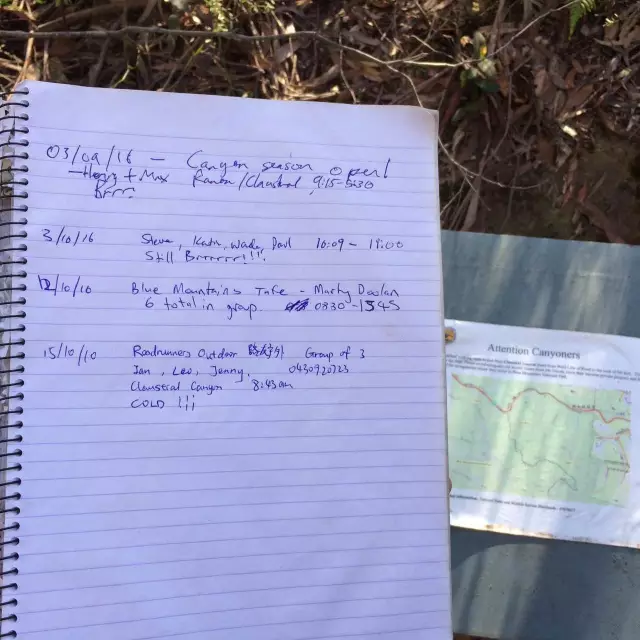 03/09/16 - Canyon season open!
Ranon/Claustral, 9:15-5:30
Brrr
3/10/16 Steve, Kath, Wade, Paul 10:09 - 18:00
Still Brrrrrr!!!.
12/10/16 Blue Mountains Tafe - Marty Doolan
6 total in group. 0830-1545
15/10/10 Roadrunners Outdoor Group of 3
Jan, Leo, Jenny, 0430920223
Claustral Canyon 8:45am
COLD !!!
Attention Canyoners